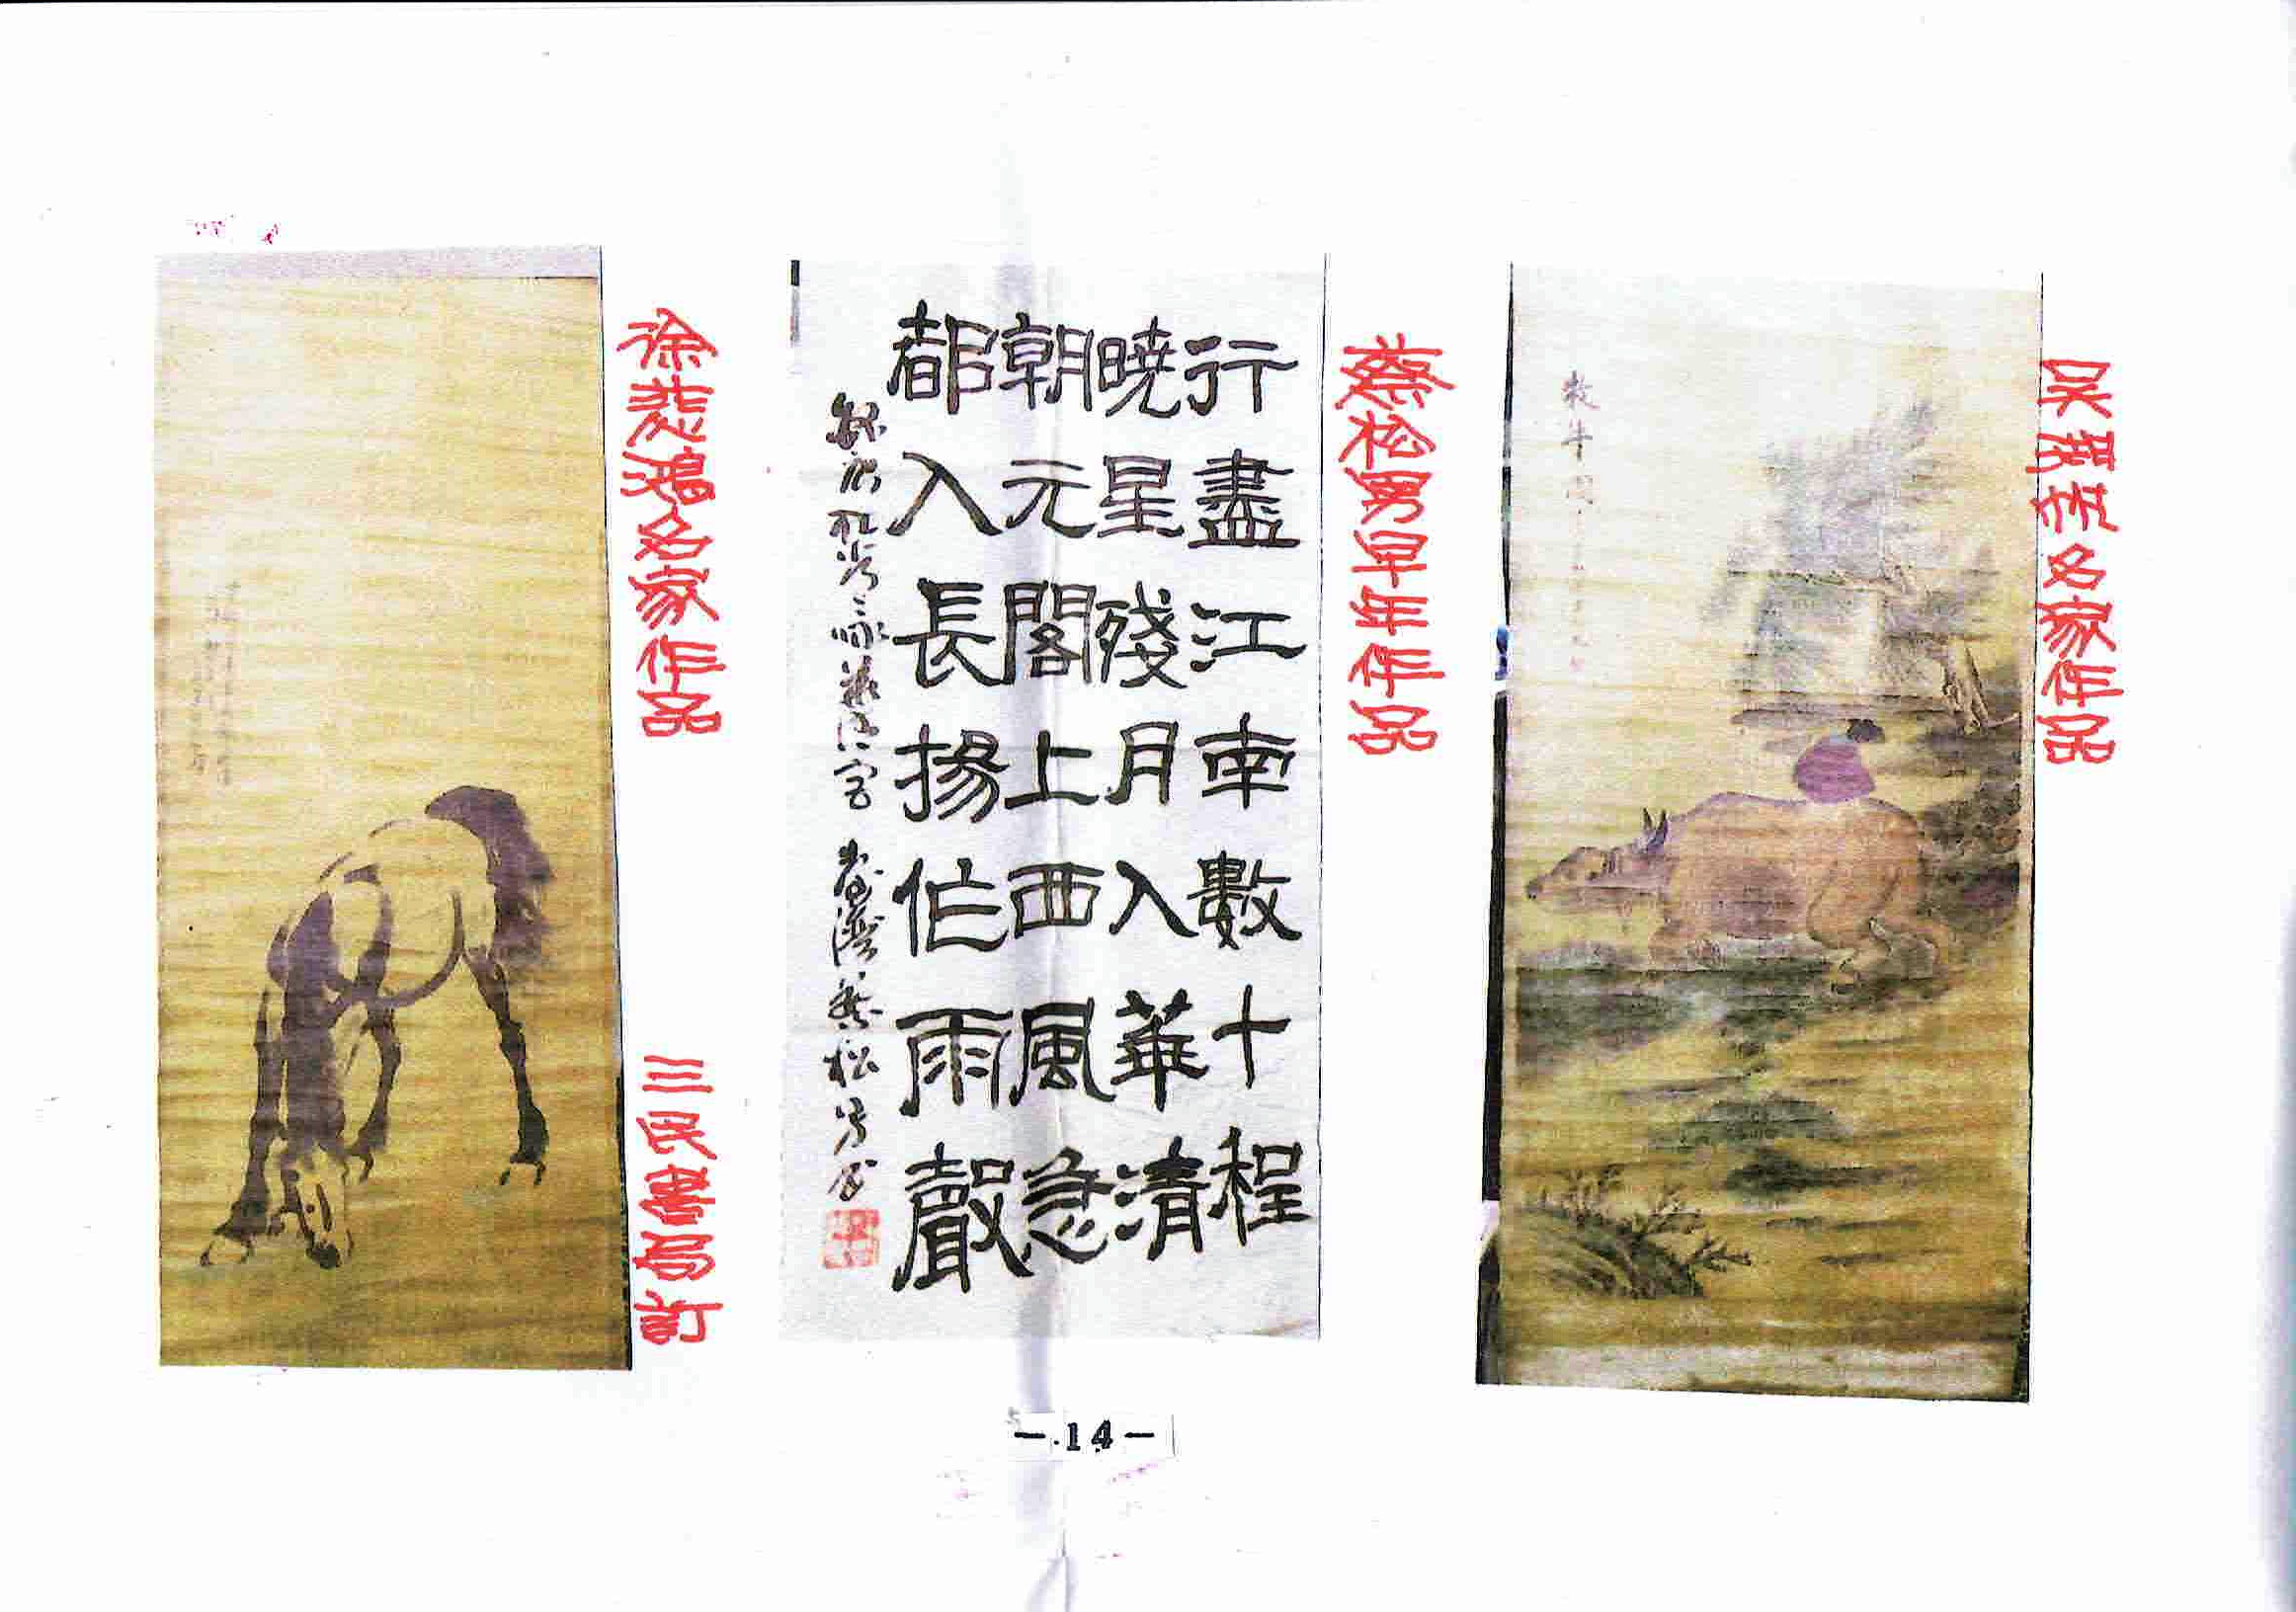 吳名家作品
牧牛圖
蔡松男早年作品
行盡江南數十程
曉星殘月入華清
朝元閣上西風急
都入長揚作雨聲
臺灣蔡松男
徐悲鴻名家作品
三民書局訂
-14-